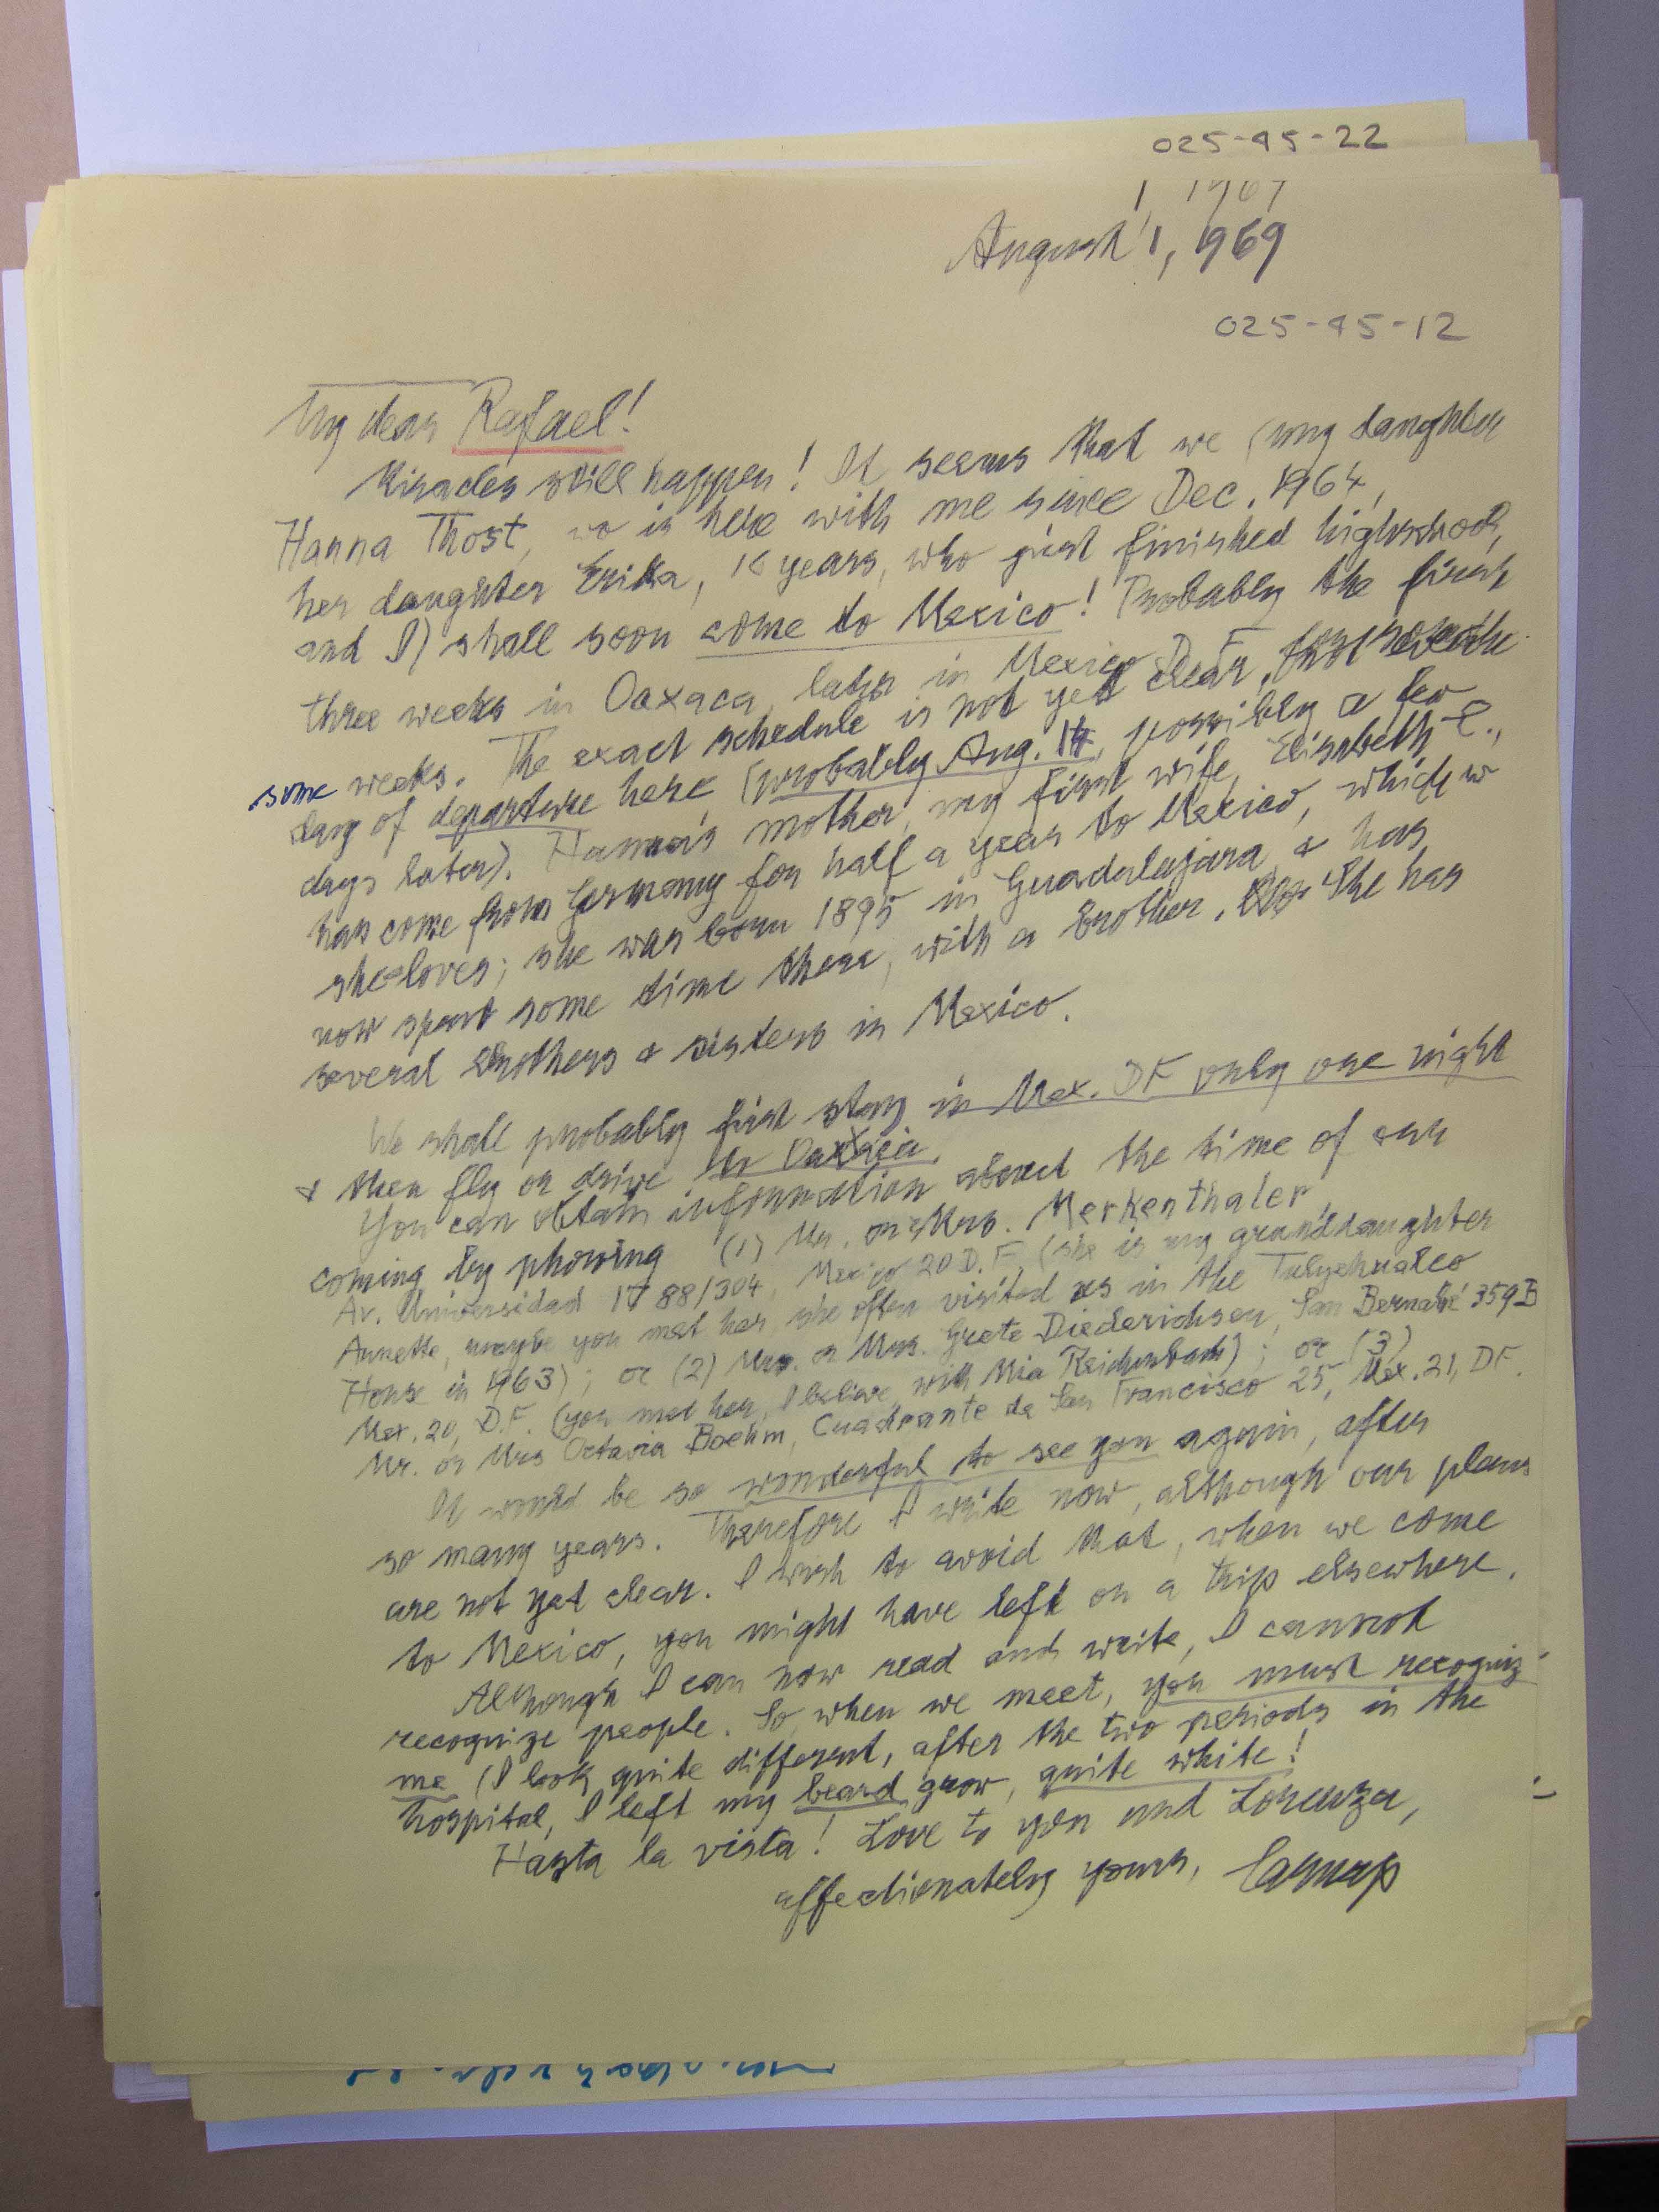 025-45-22
August 1, 1969
025-45-12
My dear Rafael!
Miracles still happen! It seems that we (my daughter
Hanna Thost, wo is here with me since Dec. 1964,
her daughter Erika, 16 years, who just finished highschool,
and I) shall soon come to Mexico! Probably the first
three weeks in Oaxaca, later in Mexico D.F. for
some weeks. The exact schedule is not yet clear, not even the
day of departure here (probably Aug. 14, possibly a few
days later). Hanna's mother, my first wife, Elisabeth C.,
has come from Germany for half a year to Mexico, which
she loves; she was born 1895 in Guadalajara, & has
now spent some time there, with a brother. She has
several brothers & sisters in Mexico.
We shall probably first stay in Mex. DF only one night
& then fly or drive to Oaxaca.
You can obtain information about the time of our
coming by phoning (1) Mr. or Mrs. Merkenthaler
Av. Universidad 1788/304, Mexico 20 D.F. (she is my granddaughter
Annette, maybe you met her, she often visited us in the Tulyehualco
House in 1963); or (2) Mrs. Grete Diederichsen, San Bernabé 359B
Mex. 20, D.F. (you met her, I believe, with Mia Reichenbach); or (3)
Mr. or Mrs Octavia Boehm, Cuadrante de San Francisco 25, Mex. 21, DF.
It would be so wonderful to see you again, after
so many years. Therefore I write now, although our plans
are not yet clear. I wish to avoid that, when we come
to Mexico, you might have left on a trip elsewhere.
Although I can now read and write, I cannot
recognize people. So, when we meet, you must recogniz
me (I look quite different, after the two periods in the
hospital, I left my beard grow, quite white!
Hasta la vista! Love to you and Lorenza,
affectionately yours, Carnap